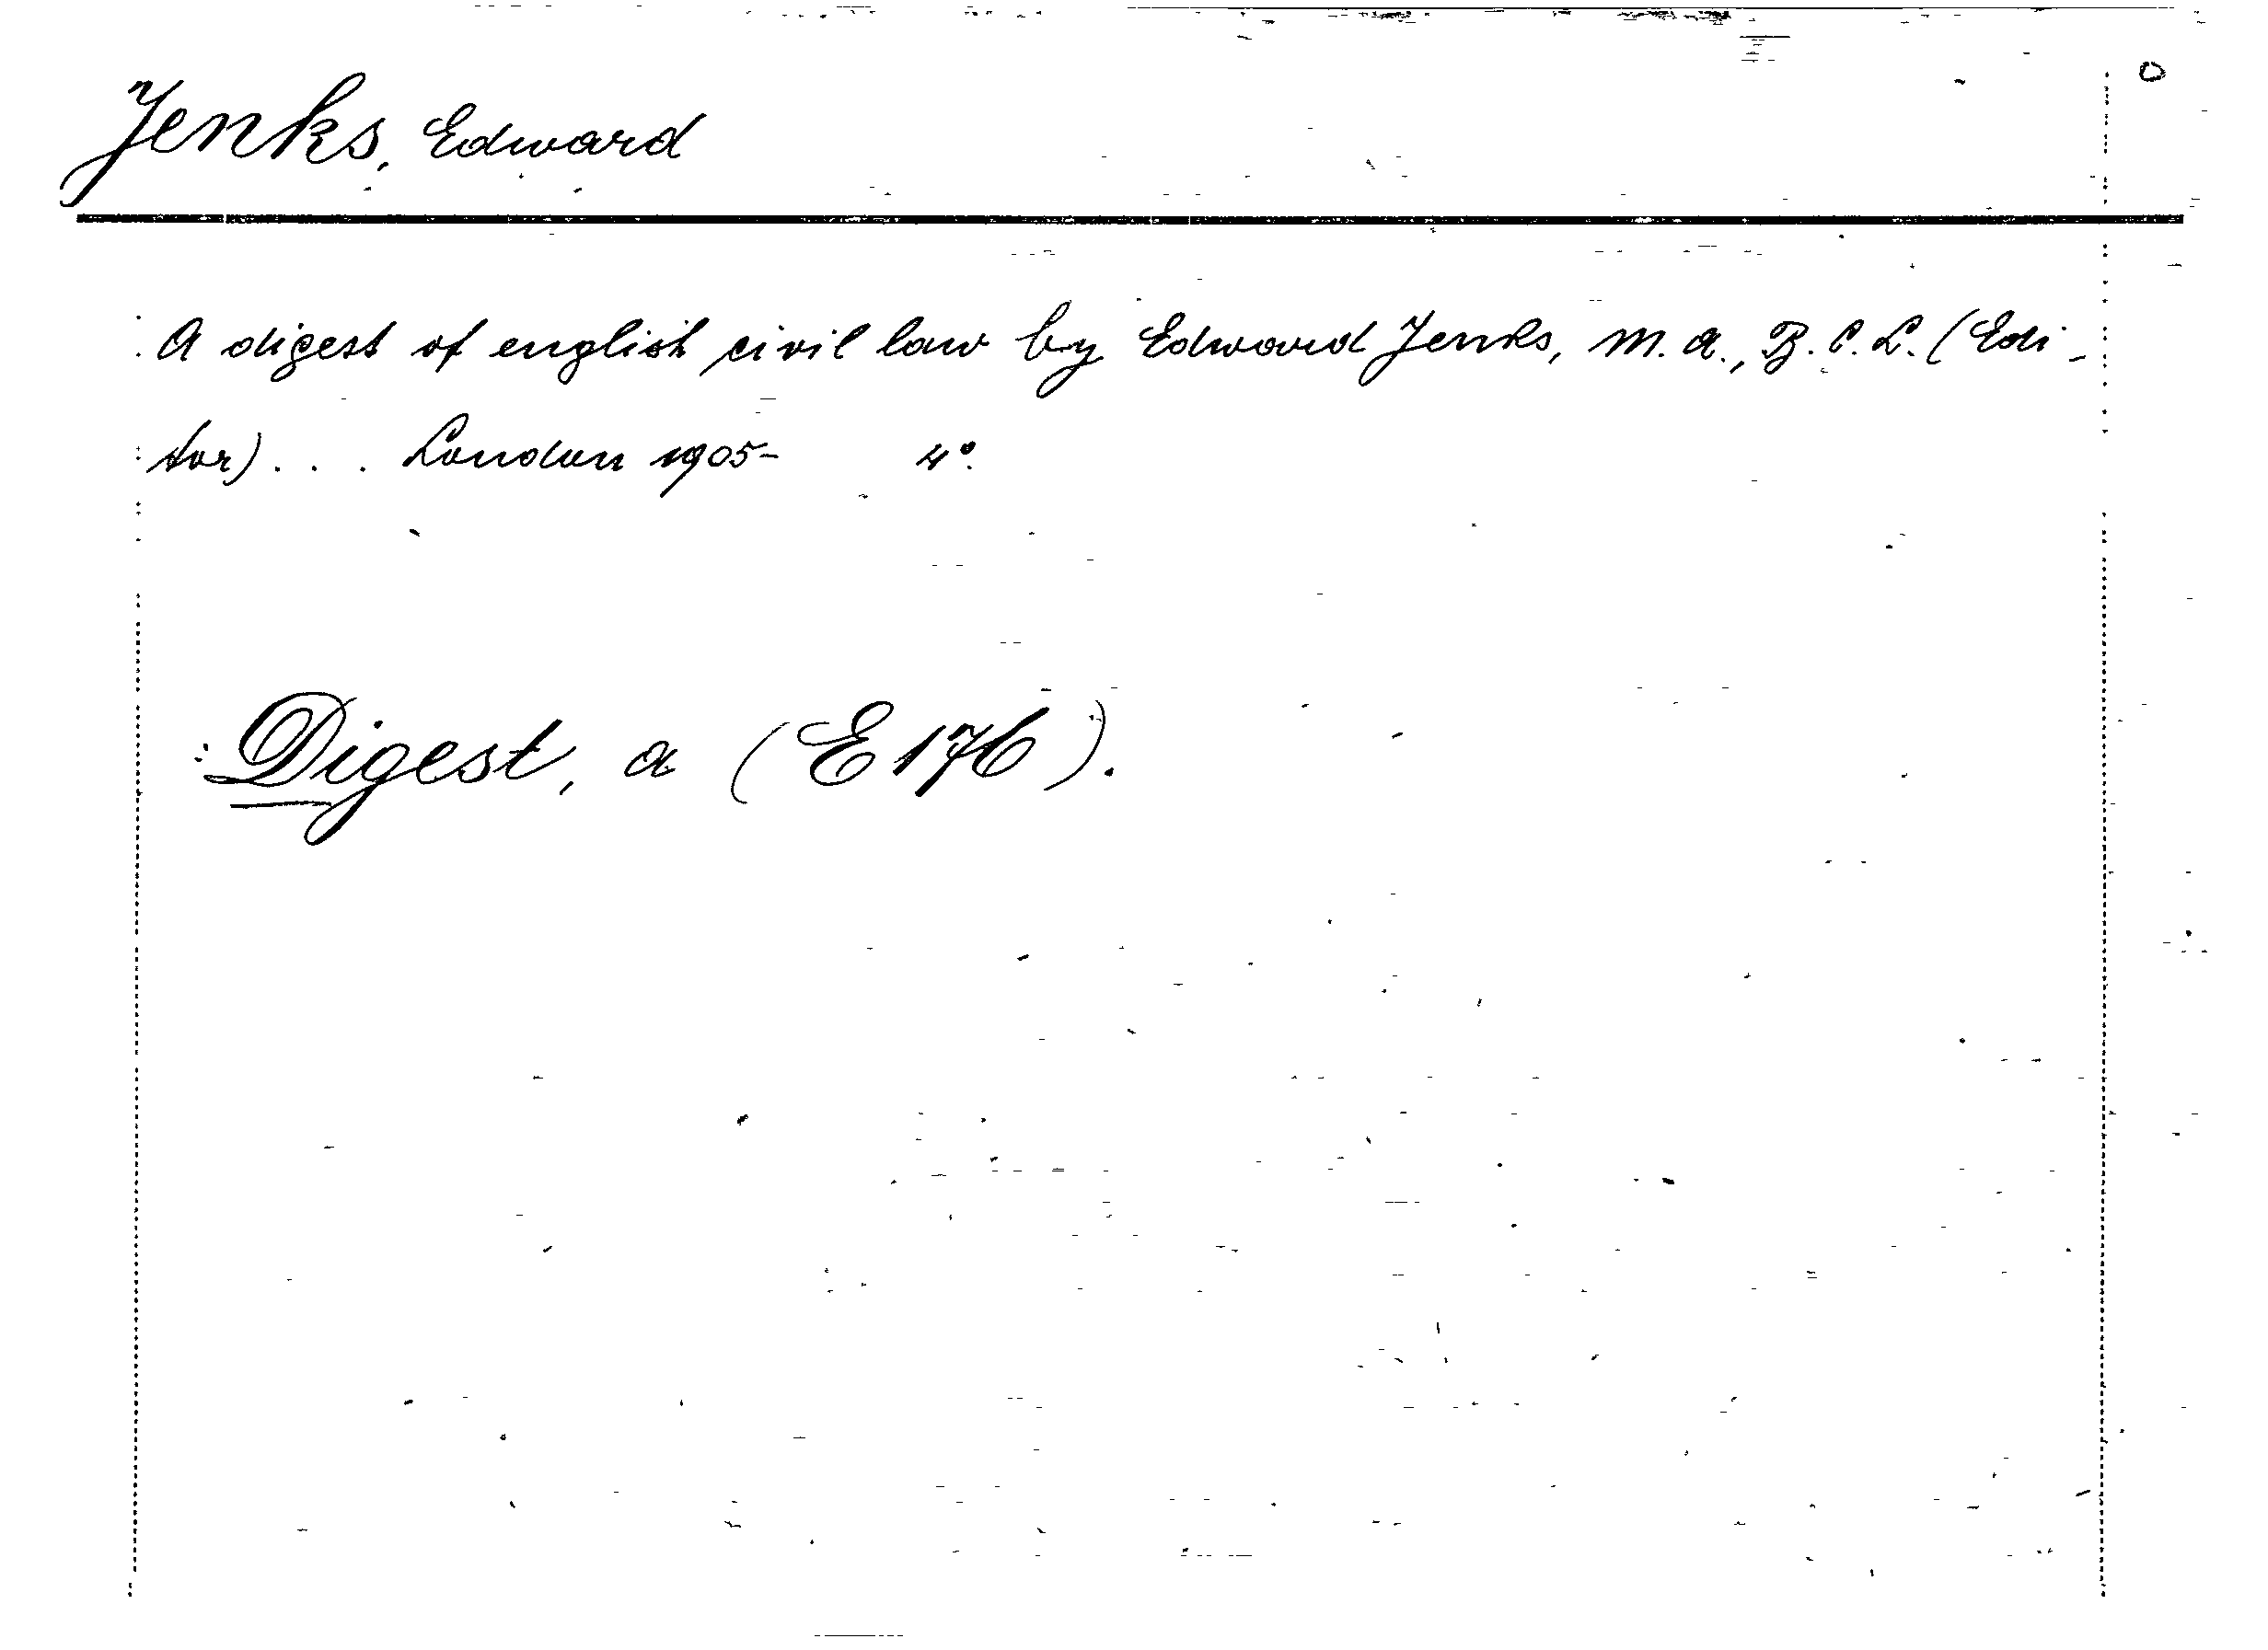 Jenks, Edward
A digest of english civil law by Edward Jenks, M. A., B. C. L. (Edi-
tor) . . . London 1905- 4°.
Digest, a (E 176).